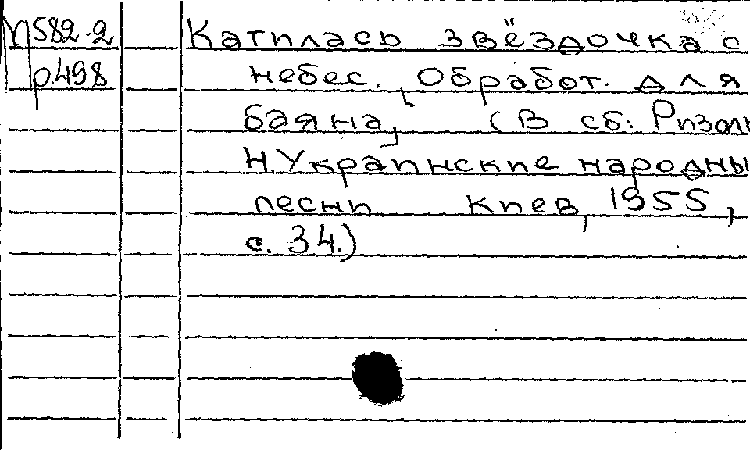 П582-2 Катилась звёздочка с
р498 небес. Обработ. для
баяна, (В сб: Ризоль
Н Украинские народны
песни Киев, 1955,
с. 34.)